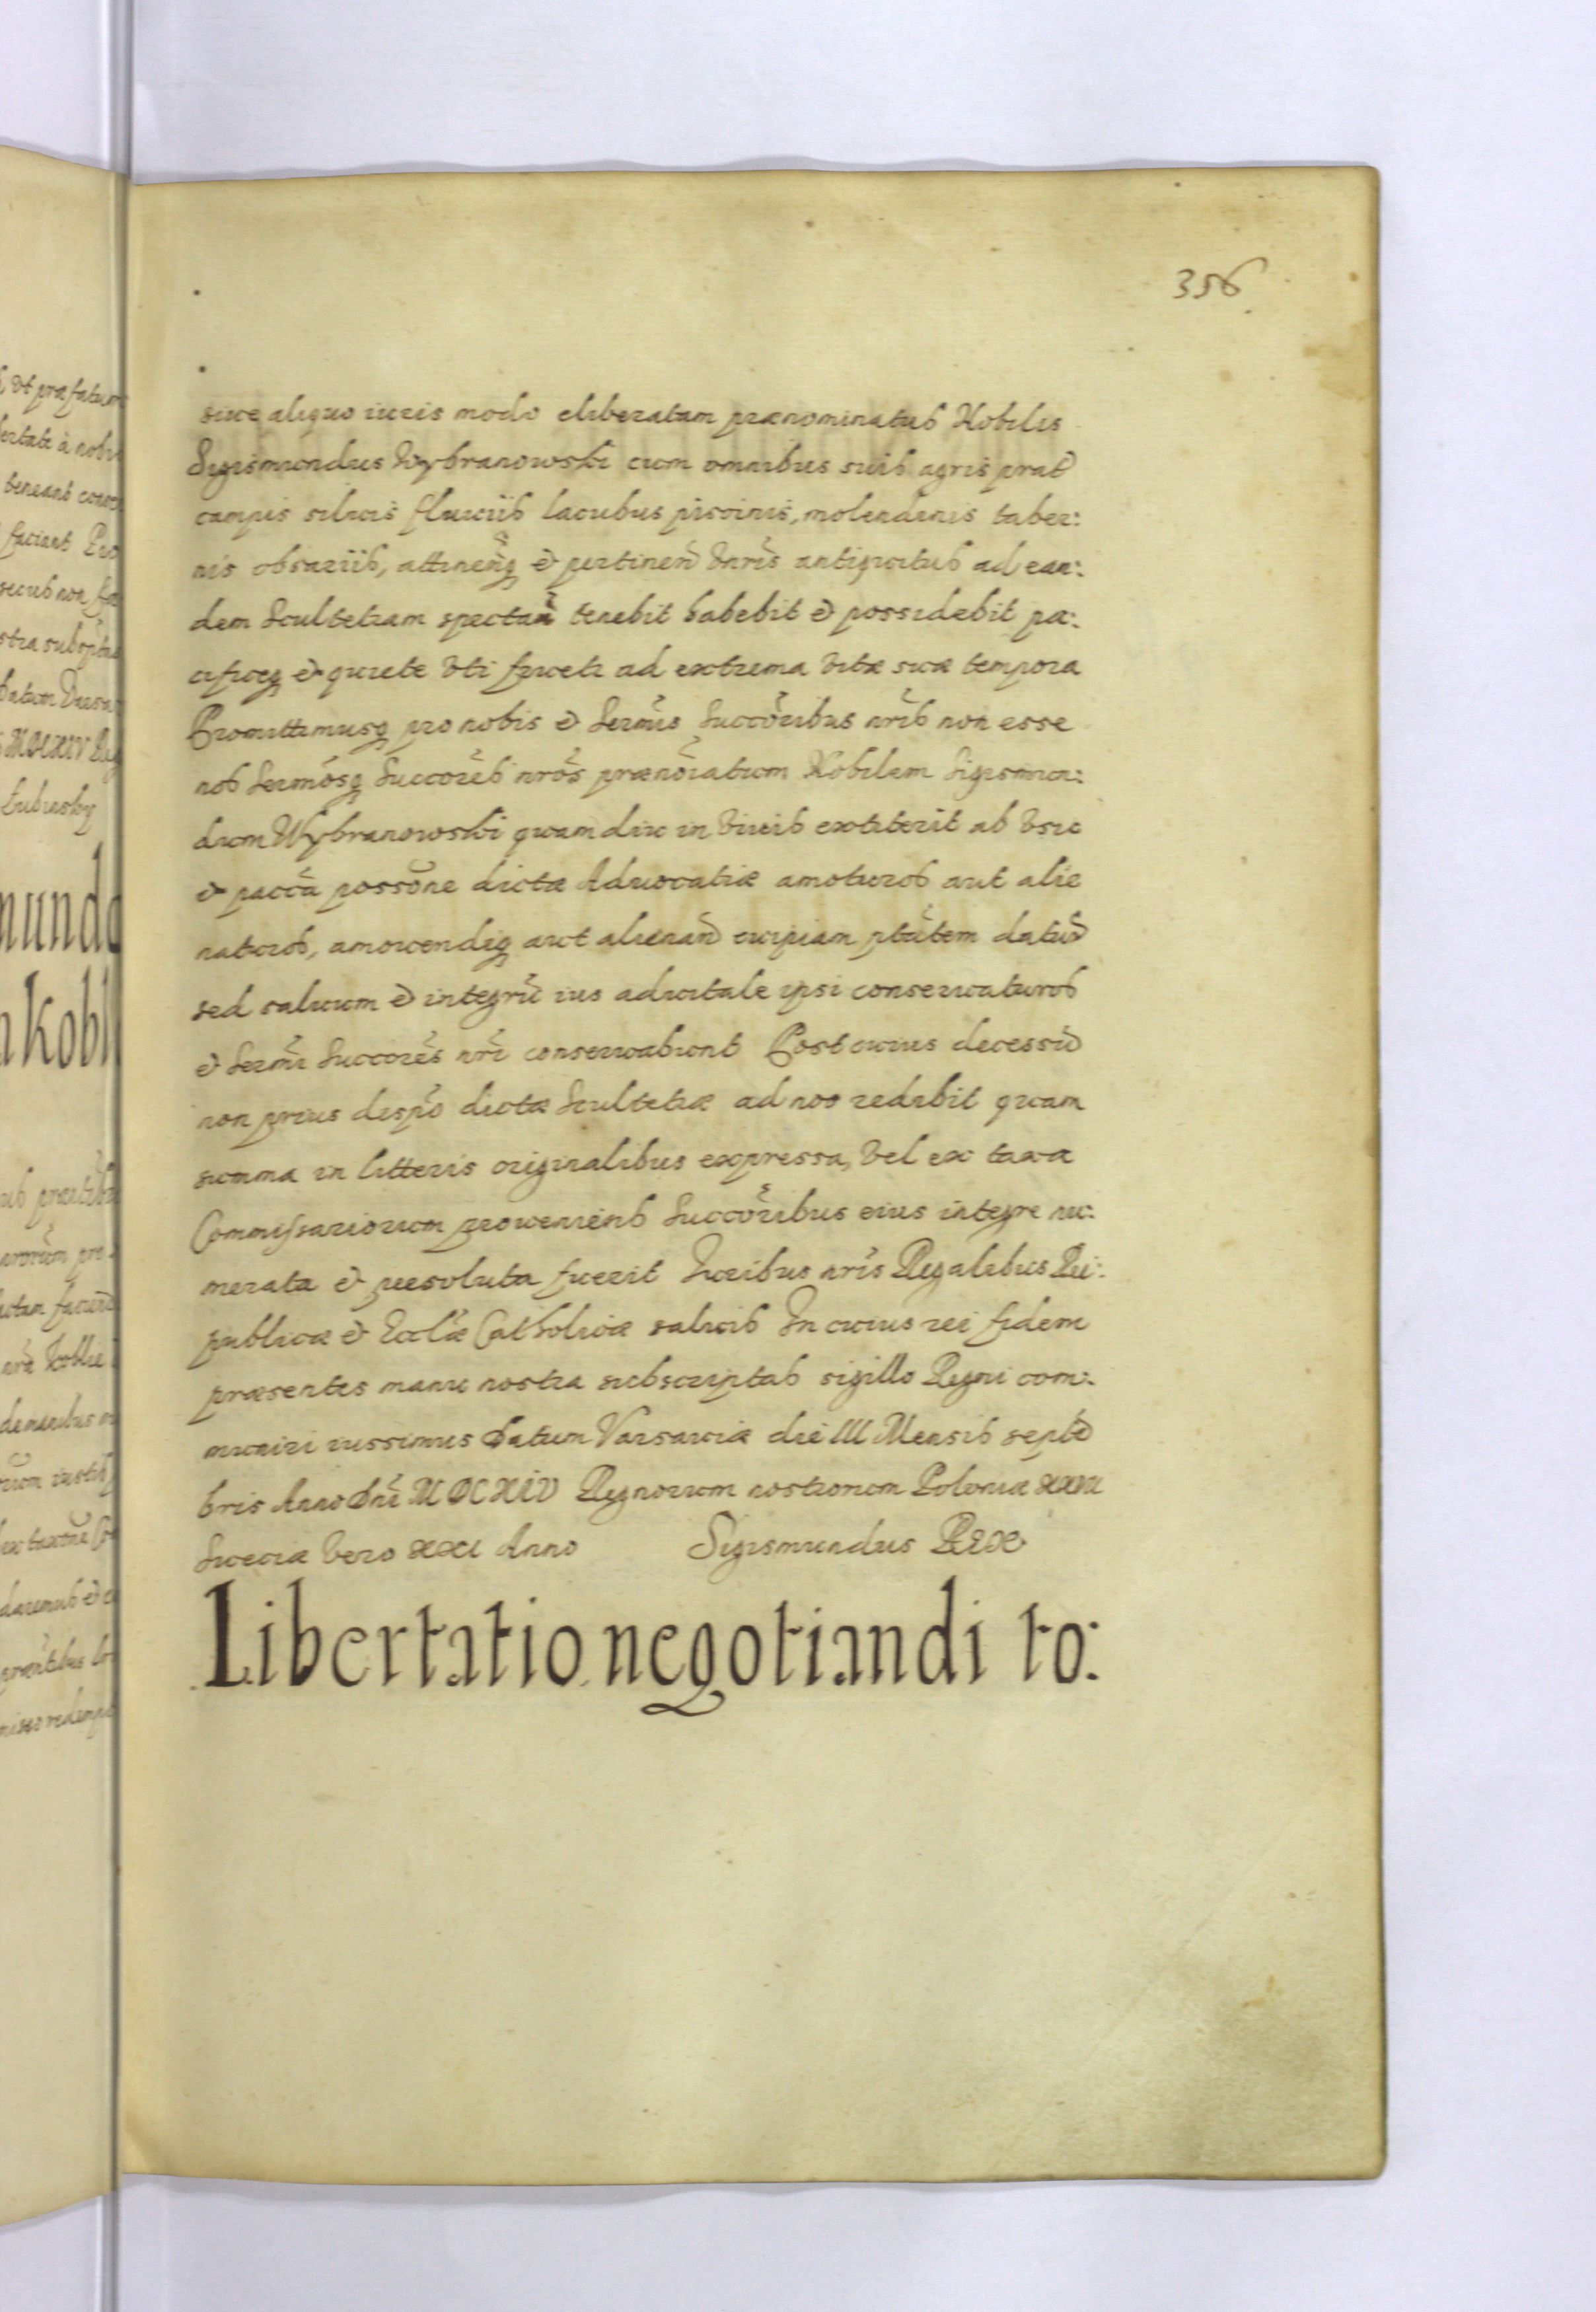 356
siue aliquo iuris modo eliberatam prænominatus Nobilis
Sigismundus Wybranowski cum omnibus suis agris prat
campis siluis fluuiis lacubus piscinis, molendinis taber:
nis obsariis, attinen̄q et pertinen̄ vnr̄is antiquitus ad ean:
dem Scultetiam spectan̄ tenebit habebit et possidebit pa:
cificeq et quiete vti frueti ad extrema vitæ suæ tempora
Promittimusq pro nobis et Serm̄is Succōribus nr̄is non esse
nos Serm̄osq Succorēs nr̄os prænōiatum Nobilem Sigismun:
dum Wybranowski quamdiu in viuis extiterit ab vsu
et pacc̄a possōne dictæ Aduocatiæ amoturos aut alie
naturos, amouendiq aut alienan̄d cuipiam ptātem datur̄
sed saluum et integrū ius aduitale ipsi conseruaturos
et Serm̄i Succorēs nr̄i conseruabunt Post cuius decessū
non prius disp̄o dictæ Scultetiæ ad nos redibit quam
summa in litteris originalibus expressa, vel ex taxa
Commissariorum proueniens Succōribus eius integre nu:
merata et persoluta fuerit Iuribus nr̄is Regalibus Rei:
publicæ et Eccl̄æ Catholicæ saluis In cuius rei fidem
præsentes manu nostra subscriptas sigillo Regni com:
muniri iussimus Datum Varsauiæ die III Mensis septē
bris Anno Dn̄i MDCXIV Regnorum nostrorum Poloniæ XXVII
Sueciæ vero XXI Anno Sigismundus Rex
Libertatio negotiandi to: